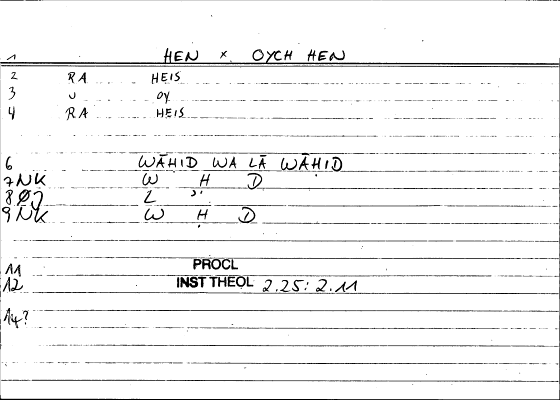 1 HEN x OYCH HEN
2 RA HEIS
3 U OY
4 RA HEIS
6 WĀḤID WA LĀ WĀḤID
7 NK W Ḥ D
8 L
9 NK W Ḥ D
11 PROCL
12 INST THEOL 2.25: 2.11
14?